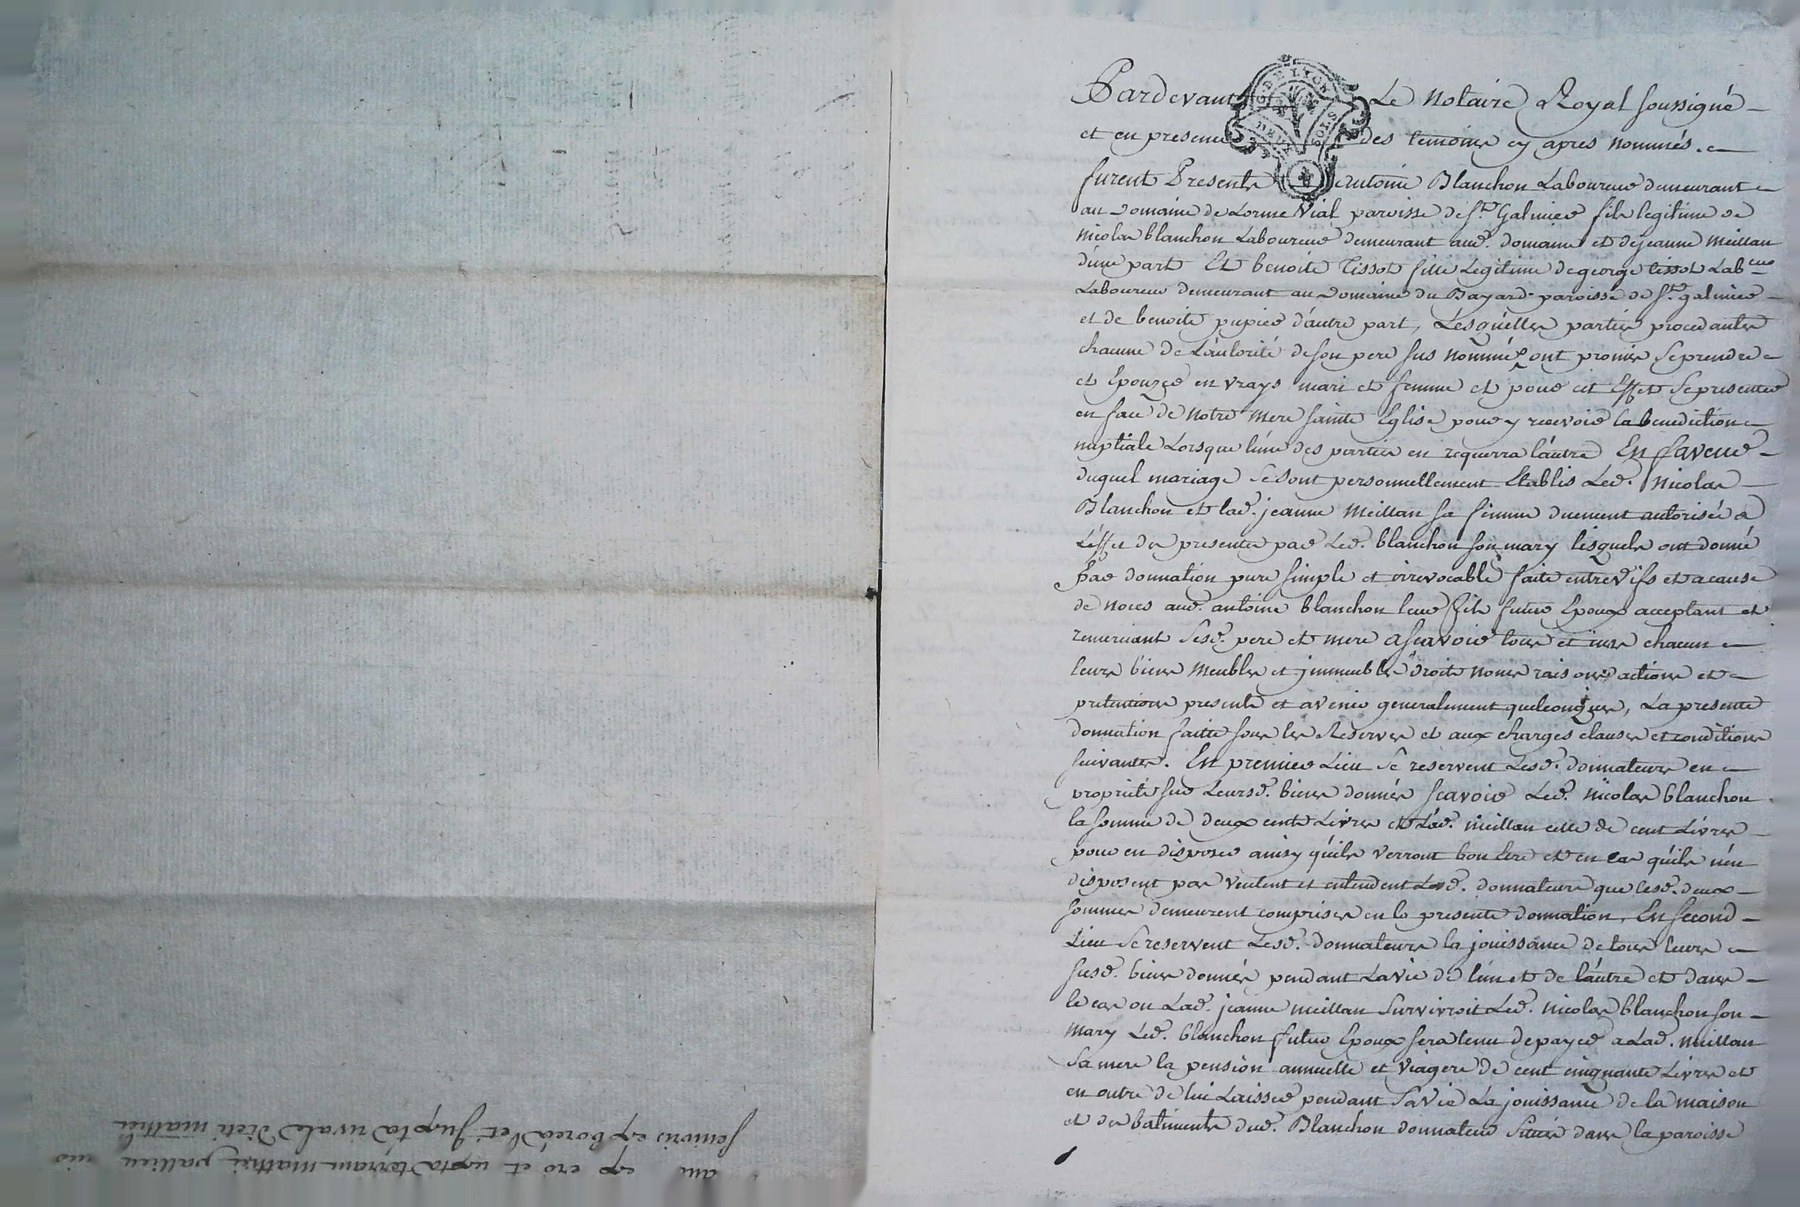 Pardevant Le Notaire Royal soussigné
G. DE LYON
DEUX SOLS
et en presence des temoins cy apres nommés.
furent Presents antoine Blanchon Laboureur demeurant
au Domaine de Lorme Vial paroisse de St Galmier fils legitime de
nicolas blanchon Laboureur demeurant aud. domaine et de jeanne Meillan
d'une part Et benoite tissot fille Legitime de george tissot Labeur
Laboureur demeurant au Domaine du Bayard paroisse de St galmier
et de benoite pupier d'autre part, Lesquelles parties procedantes
chacune de L'autorité de son pere sus nommé ont promis se prendre
et Epouzer en vrays mari et femme et pour cet Effet se presenter
en face de notre mere sainte Eglise pour y recevoir la benediction
nuptiale Lorsque l'une des parties en requerra l'autre En faveur
duquel mariage se sont personnellement Etablis Led. Nicolas
Blanchon et lad. jeanne Meillan sa femme duement autorisée a
L'effet des presentes par Led. blanchon son mary lesquels ont donné
par donnation pure simple et irrevocable faite entre vifs et a cause
de noces aud. antoine blanchon leur fils futur Epoux acceptant et
remerciant sesd. pere et mere ascavoir tous et uns chacun
leurs biens meubles et jmmeubles droits noms raisons actions et
pretentions presents et avenir generalement quelconques, La presente
donnation faitte sous les Reserves et aux charges clauses et conditions
suivantes. En premier Lieu se reservent Lesd. donnateurs en
propriété sur Leursd. biens donnés scavoir Led. nicolas blanchon
la somme de deux cents Livres et Lad. meillan celle de cent Livres
pour en disposer ainsy qu'ils verront bon Etre et en cas qu'ils n'en
disposent pas veulent et entendent Lesd. donnateurs que lesd. deux
sommes demeurent comprises en la presente donnation, En second
Lieu se reservent Lesd. donnateurs la jouissance de tous leurs
susd. biens donnés pendant La vie de l'un et de l'autre et dans
le cas ou Lad. jeanne meillan survivroit Led. nicolas blanchon son
mary Led. blanchon futur Epoux sera tenu de payer a Lad. meillan
sa mere la pension annuelle et viagere de cent cinquante Livres et
en outre de lui Laisser pendant sa vie La jouissance de la maison
et des batiments dud. Blanchon donnateur situés dans la paroisse
et juxta terram matthei pallieu
ex borea et juxta rivale dicti matthei